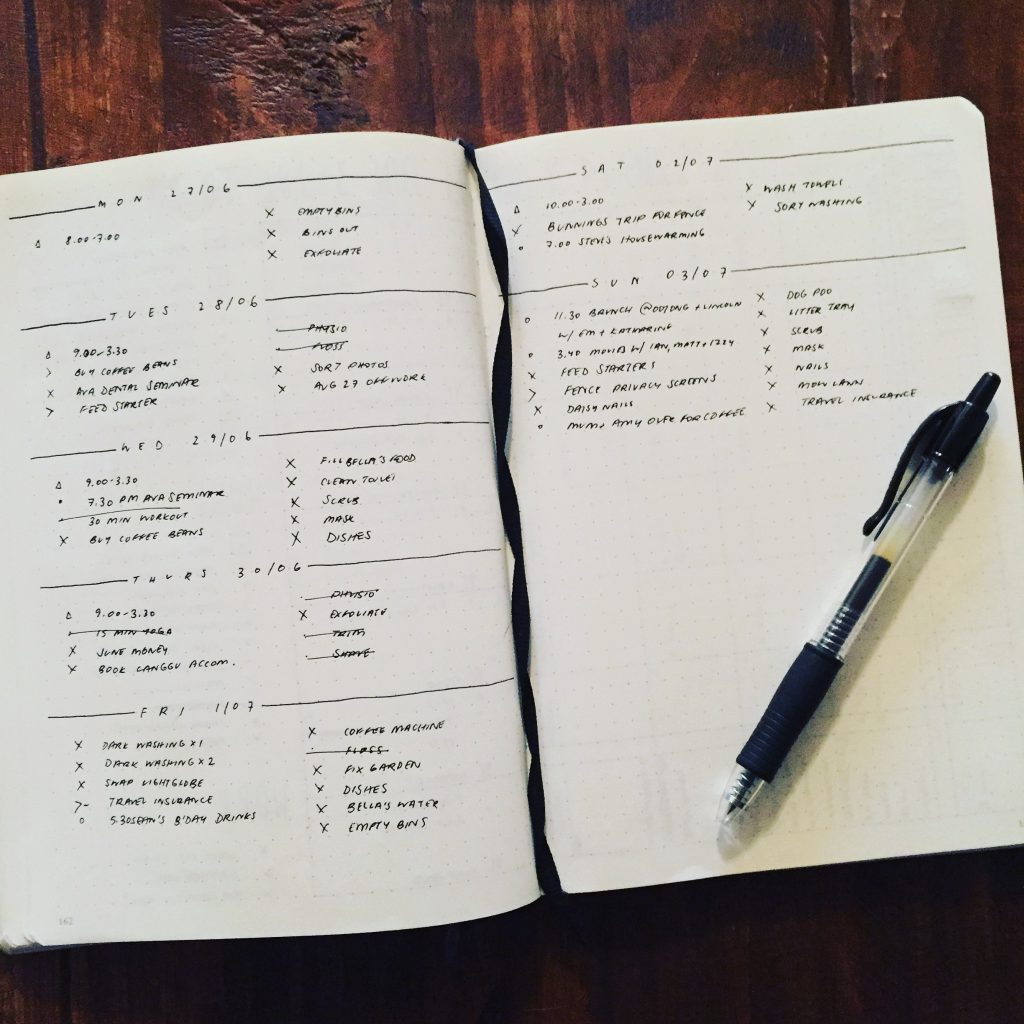 MON 27/06
△ 8.00-7.00
X EMPTY BINS
X BINS OUT
X EXFOLIATE
TUES 28/06
△ 9.00-3.30
> BUY COFFEE BEANS
X AVA DENTAL SEMINAR
> FEED STARTER
PHYSIO
FLOSS
X SORT PHOTOS
X AUG 27 OFF WORK
WED 29/06
△ 9.00-3.30
• 7.30 PM AVA SEMINAR
30 MIN WORKOUT
X BUY COFFEE BEANS
X FILL BELLA'S FOOD
X CLEAN TOILET
X SCRUB
X MASK
X DISHES
THURS 30/06
△ 9.00-3.30
15 MIN YOGA
X JUNE MONEY
X BOOK CANGGU ACCOM.
PHYSIO
X EXFOLIATE
TRIM
SHAVE
FRI 1/07
X DARK WASHING X 1
X DARK WASHING X 2
X SWAP LIGHTGLOBE
> TRAVEL INSURANCE
○ 5.30 SEAN'S B'DAY DRINKS
X COFFEE MACHINE
FLOSS
X FIX GARDEN
X DISHES
X BELLA'S WATER
X EMPTY BINS
162
SAT 02/07
△ 10.00-3.00
X BUNNINGS TRIP FOR FENCE
○ 7.00 STEVE'S HOUSEWARMING
X WASH TOWELS
X SORT WASHING
SUN 03/07
○ 11.30 BRUNCH + LINCOLN
W/ EM + KATHARINE
○ 3.40 MOVIES W/ IAN, MATT + IZZY
X FEED STARTERS
> FENCE PRIVACY SCREENS
X DAISY NAILS
○ MUM + AMY OVER FOR COFFEE
X DOG POO
X LITTER TRAY
X SCRUB
X MASK
X NAILS
X MOW LAWN
X TRAVEL INSURANCE